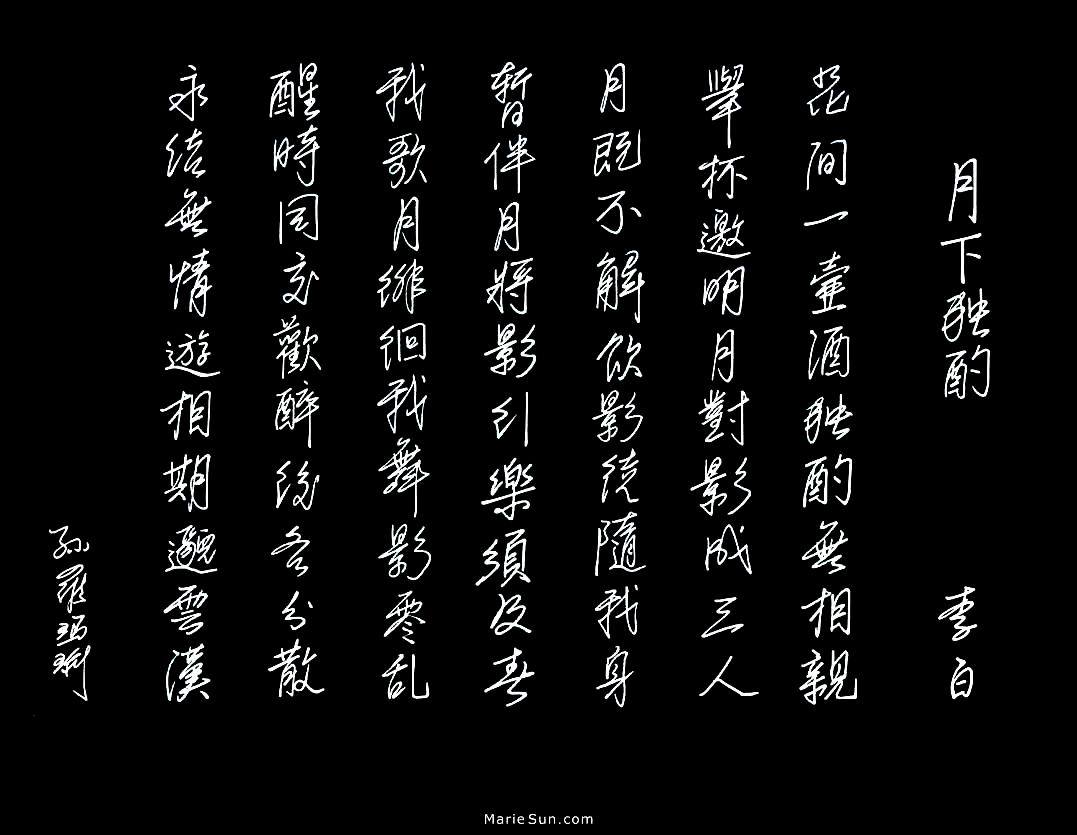 月下独酌 李白
花間一壷酒独酌無相親
舉杯邀明月對影成三人
月既不解飲影徒隨我身
暫伴月將影行樂須及春
我歌月徘徊我舞影零乱
醒時同交歡醉後各分散
永結無情遊相期邈雲漢
孫羅瑪琍
MarieSun.com